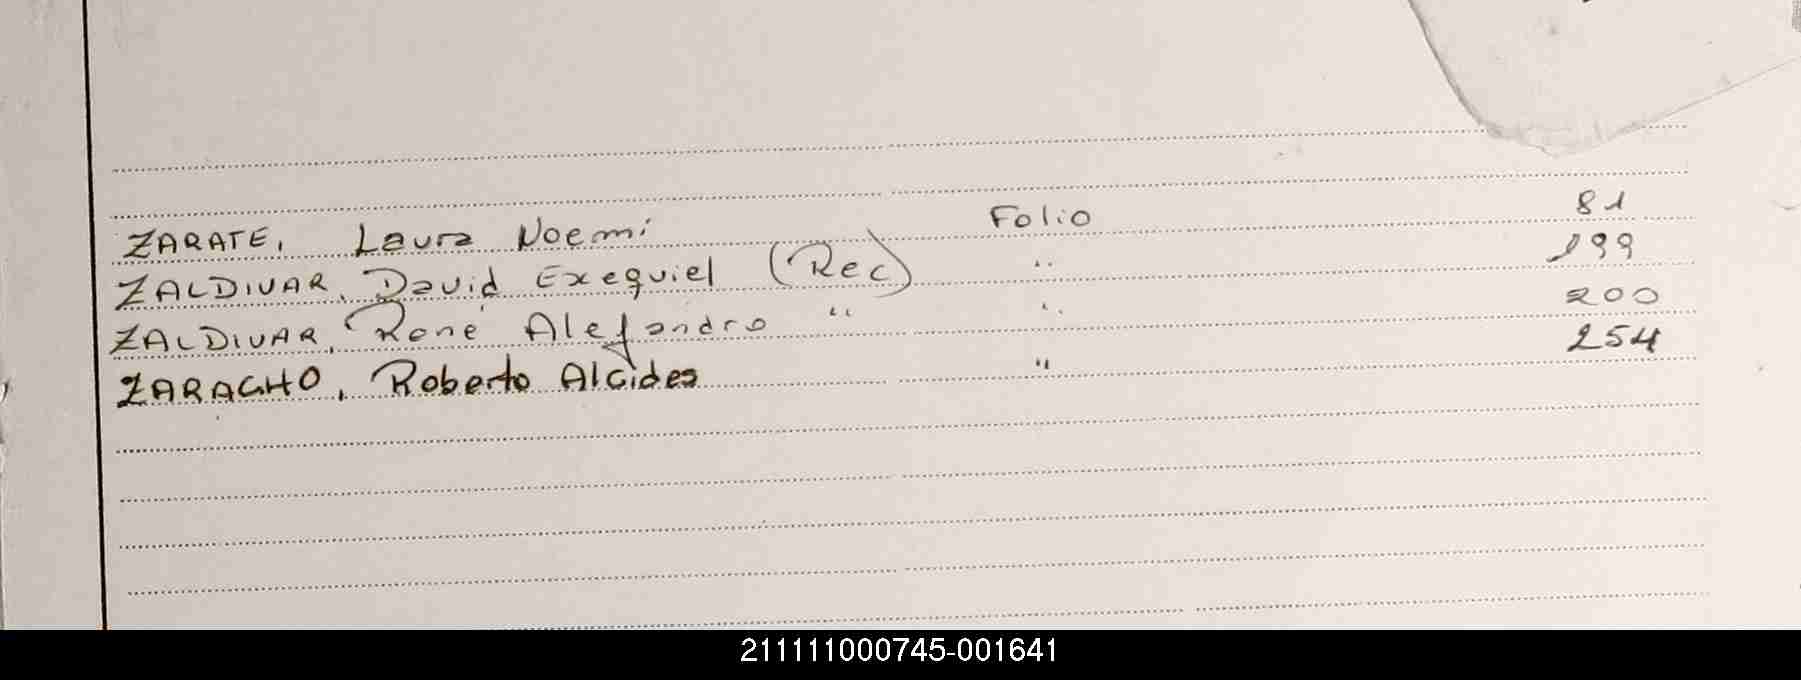 ZARATE, Laura Noemi Folio 81
ZALDIVAR, David Exequiel (Rec) " 199
ZALDIVAR, René Alejandro " " 200
ZARACHO, Roberto Alcides " 254
211111000745-001641